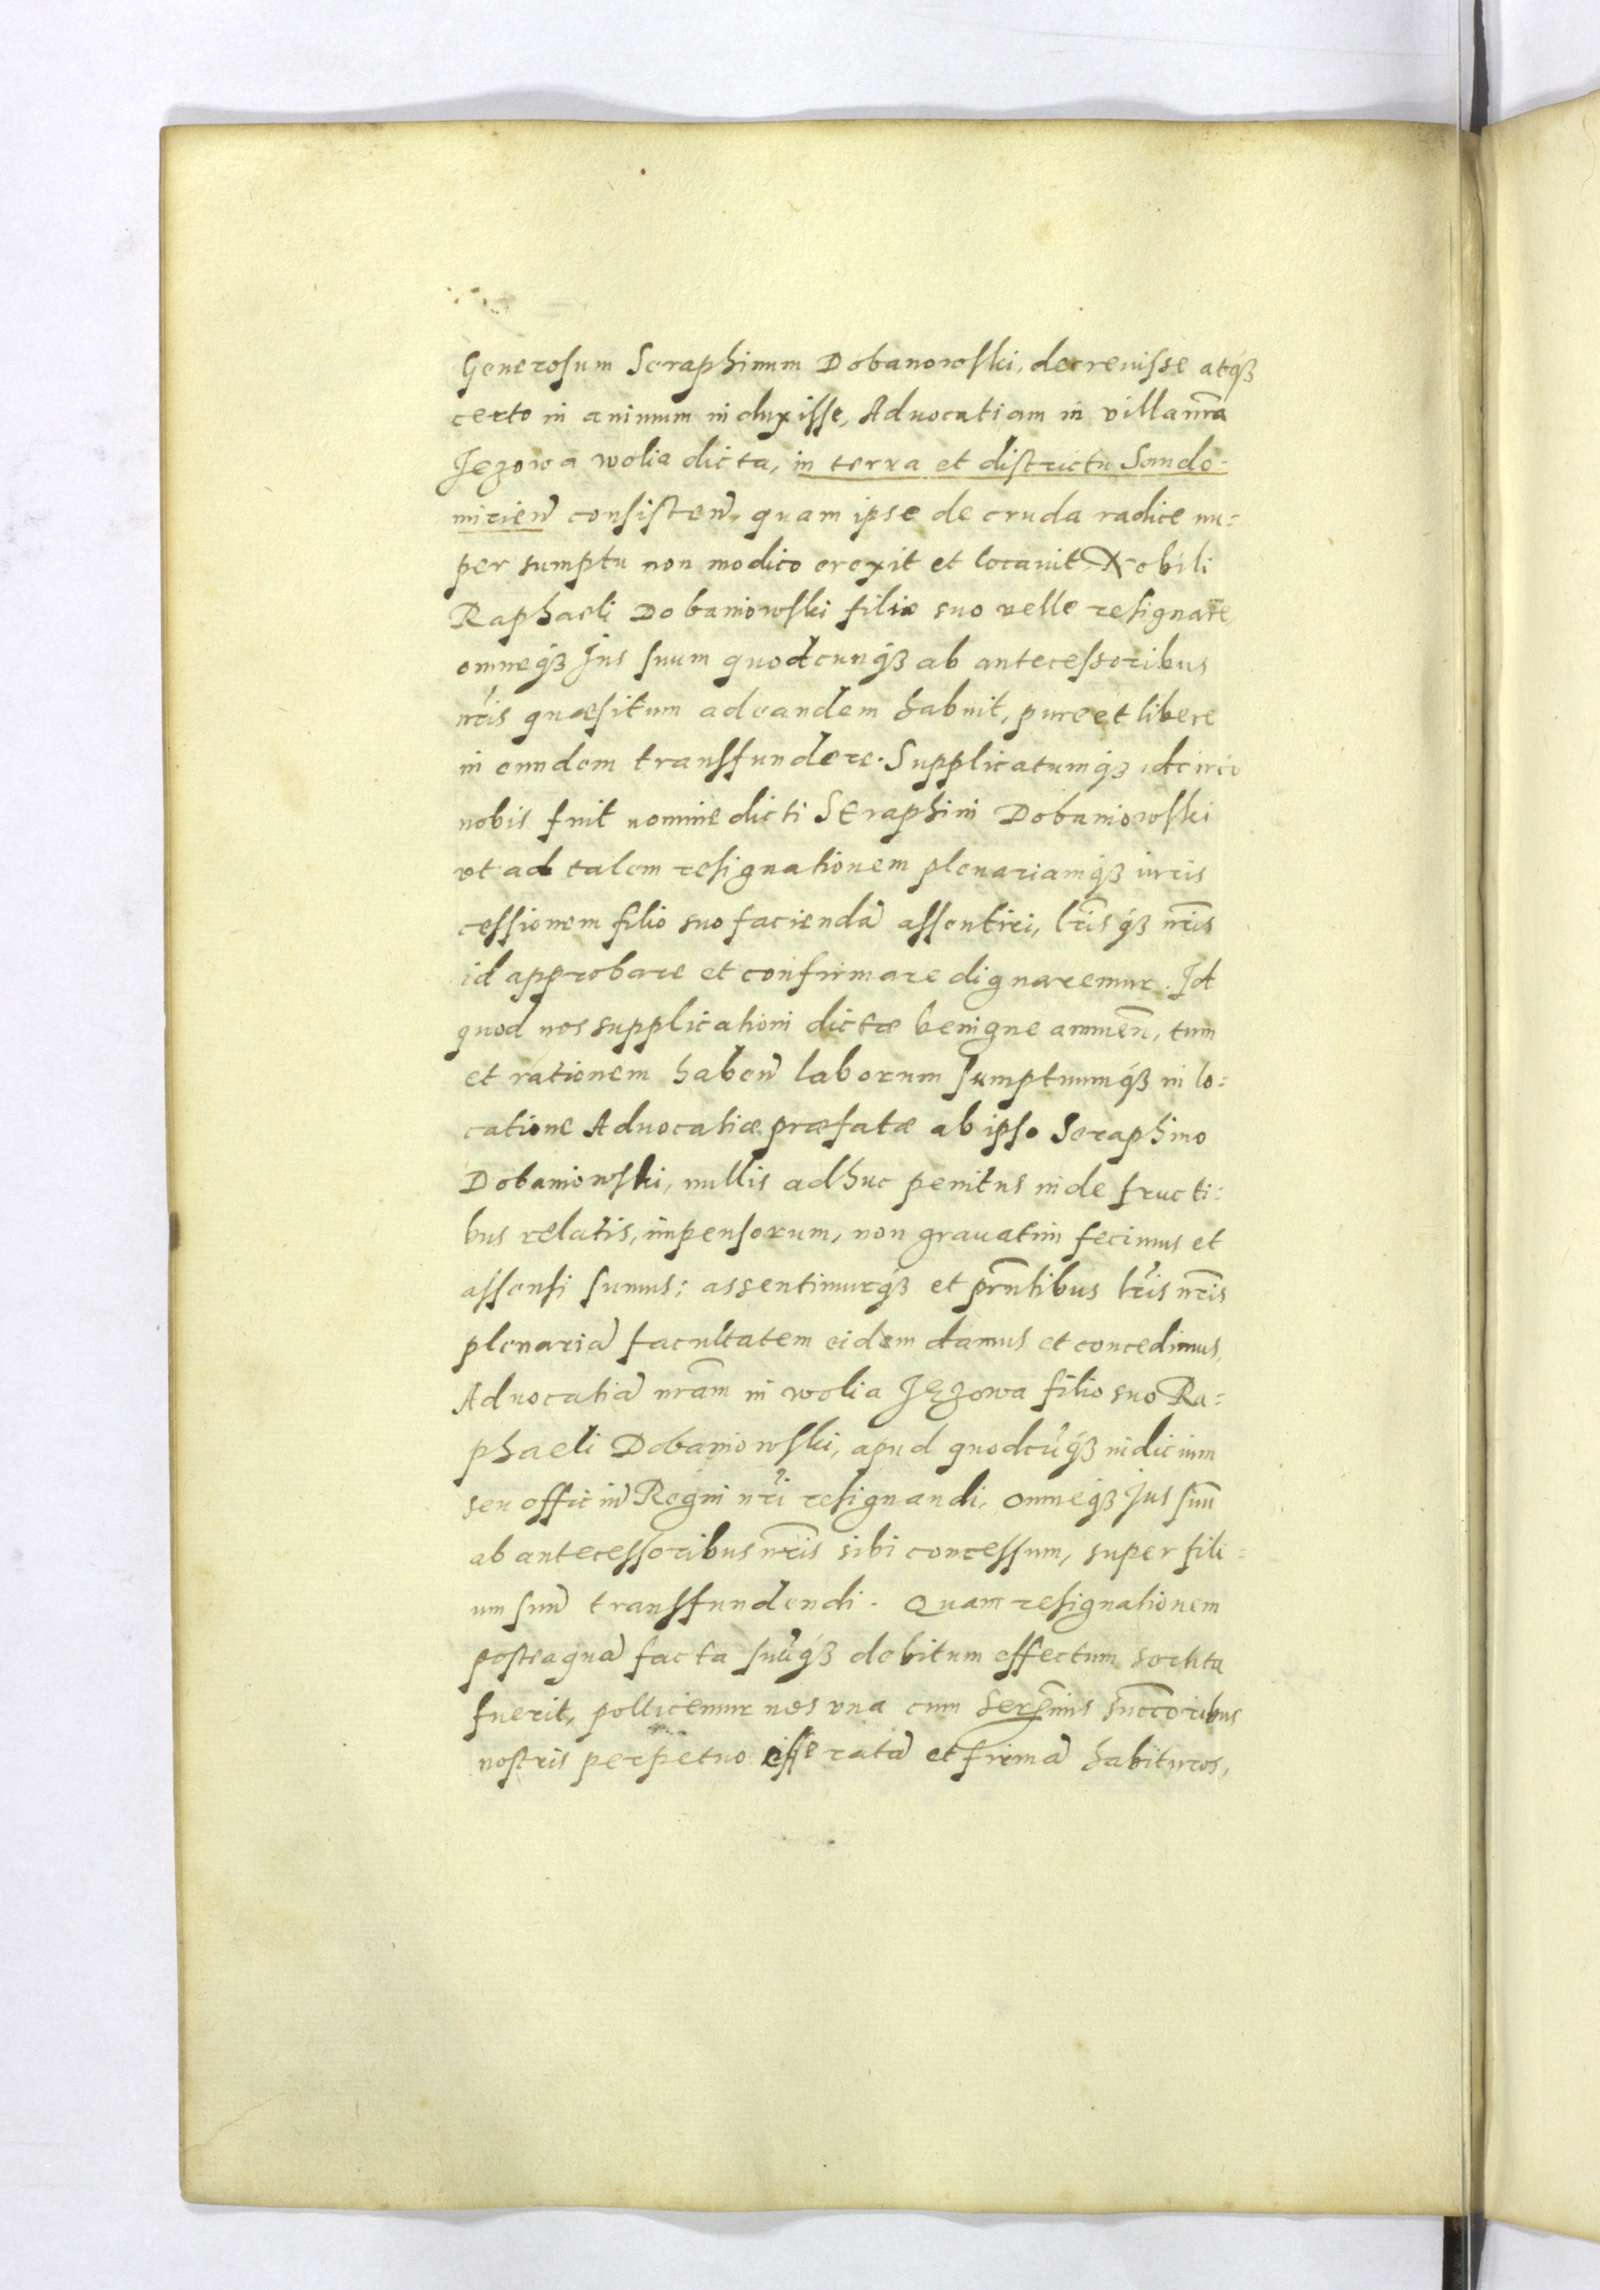 Generosum Seraphinum Dobanowski, decrevisse atq́ꝫ
certo in animum induxisse, Advocatiam in villa nr̃a
Jezowa wolia dicta, in terra et districtu Sando-
mirień consisteń, quam ipse de cruda radice nu=
per sumptu non modico erexit et locavit Nobili
Raphaeli Dobaniowski filio suo velle resignare
omneq́ꝫ Jus suum quodcunq́ꝫ ab antecessoribus
nr̃is quæsitum ad eandem habuit, pure et libere
in eundem transfundere. Supplicatumq́ꝫ idcirco
nobis fuit nomine dicti Seraphini Dobaniowski
vt ad talem resignationem plenariamq́ꝫ iuris
cessionem filio suo faciendã assentiri, lr̃isq́ꝫ nr̃is
id approbare et confirmare dignaremur. Id
quod nos supplicationi dictæ benigne annueñ, tum
et rationem habeñ laborum sumptuumq́ꝫ in lo=
catione Advocatiæ præfatæ ab ipso Seraphino
Dobaniowski, nullis adhuc penitus inde fructi=
bus relatis, impensorum, non gravatim fecimus et
assensi sumus; assentimurq́ꝫ et pr̃ntibus lr̃is nr̃is
plenariã facultatem eidem damus et concedimus,
Advocatiã nr̃am in wolia Jezowa filio suo Ra=
phaeli Dobaniowski, apud quodcũq́ꝫ iudicium
seu officiũ Regni nr̃i resignandi, omneq́ꝫ jus suũ
ab antecessoribus nr̃is sibi concessum, super fili=
um suũ transfundendi. Quam resignationem
posteaquã facta suũq́ꝫ debitum effectum sortita
fuerit, pollicemur nos vna cum Ser̃mis succ̃oribus
nostris perpetuo esse ratã et firmã habituros,